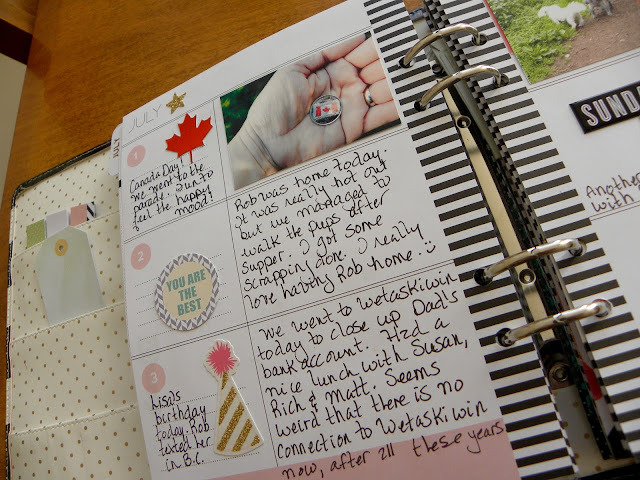 JULY
JULY
1
Canada Day!
We went to the
parade. Fun to
feel the happy
mood!
2
Rob was home today.
It was really hot out
but we managed to
walk the pups after
supper. I got some
scrappin' done. I really
love having Rob home. :)
YOU ARE
THE
BEST
3
Lisa's
birthday
today. Rob
texted her
in B.C.
We went to Wetaskiwin
today to close up Dad's
bank account. Had a
nice lunch with Susan,
Rich & Matt. Seems
weird that there is no
connection to Wetaskiwin
now, after all these years
SUNDA
Another
with